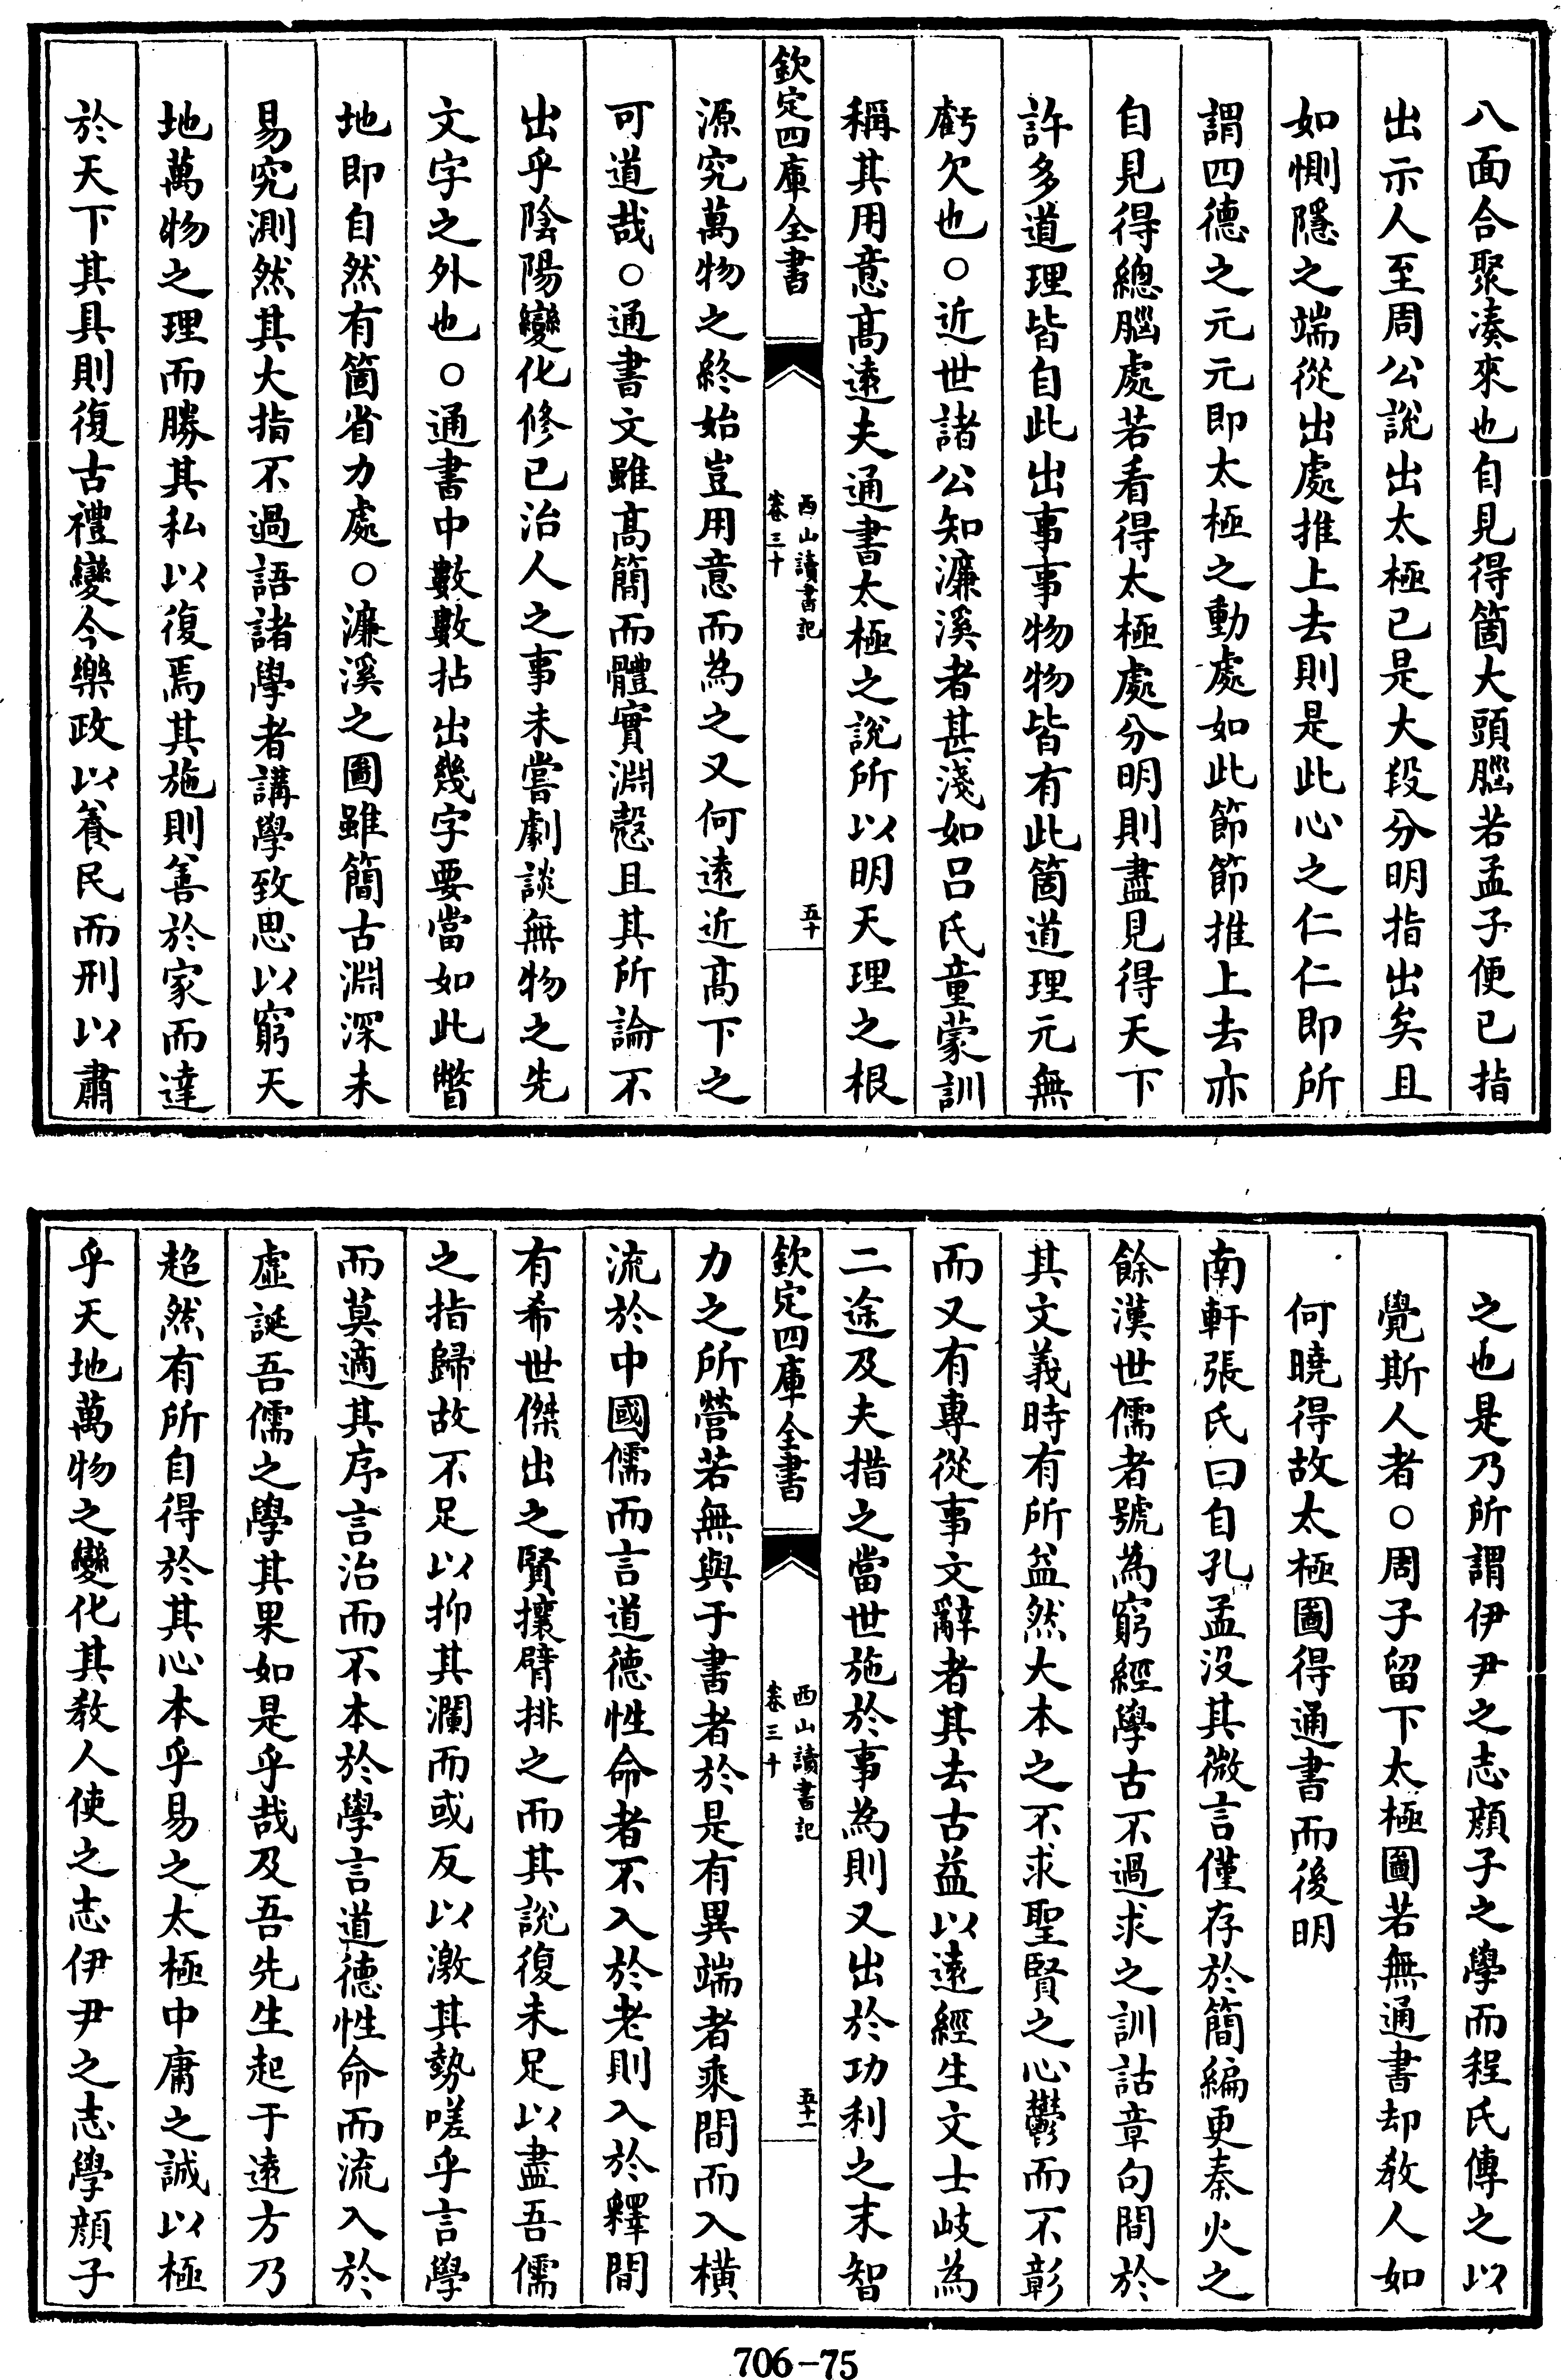 八面合聚湊來也自見得箇大頭腦若孟子便已指
出示人至周公說出太極已是大段分明指出矣且
如惻隱之端從出處推上去則是此心之仁仁即所
謂四德之元元即太極之動處如此節節推上去亦
自見得總腦處若看得太極處分明則盡見得天下
許多道理皆自此出事事物物皆有此箇道理元無
虧欠也○近世諸公知濂溪者甚淺如呂氏童蒙訓
稱其用意高遠夫通書太極之說所以明天理之根
欽定四庫全書
西山讀書記
卷三十
五十
源究萬物之終始豈用意而為之又何遠近高下之
可道哉○通書文雖高簡而體實淵慤且其所論不
出乎陰陽變化修己治人之事未嘗劇談無物之先
文字之外也○通書中數數拈出幾字要當如此瞥
地即自然有箇省力處○濂溪之圖雖簡古淵深未
易究測然其大指不過語諸學者講學致思以窮天
地萬物之理而勝其私以復焉其施則善於家而達
於天下其具則復古禮變今樂政以養民而刑以肅
之也是乃所謂伊尹之志顏子之學而程氏傳之以
覺斯人者○周子留下太極圖若無通書却教人如
何曉得故太極圖得通書而後明
南軒張氏曰自孔孟沒其微言僅存於簡編更秦火之
餘漢世儒者號為窮經學古不過求之訓詁章句間於
其文義時有所益然大本之不求聖賢之心鬱而不彰
而又有專從事文辭者其去古益以遠經生文士岐為
二途及夫措之當世施於事為則又出於功利之末智
欽定四庫全書
西山讀書記
卷三十
五十一
力之所營若無與于書者於是有異端者乘間而入橫
流於中國儒而言道德性命者不入於老則入於釋間
有希世傑出之賢攘臂排之而其說復未足以盡吾儒
之指歸故不足以抑其瀾而或反以激其勢嗟乎言學
而莫適其序言治而不本於學言道德性命而流入於
虛誕吾儒之學其果如是乎哉及吾先生起于遠方乃
超然有所自得於其心本乎易之太極中庸之誠以極
乎天地萬物之變化其教人使之志伊尹之志學顏子
706-75